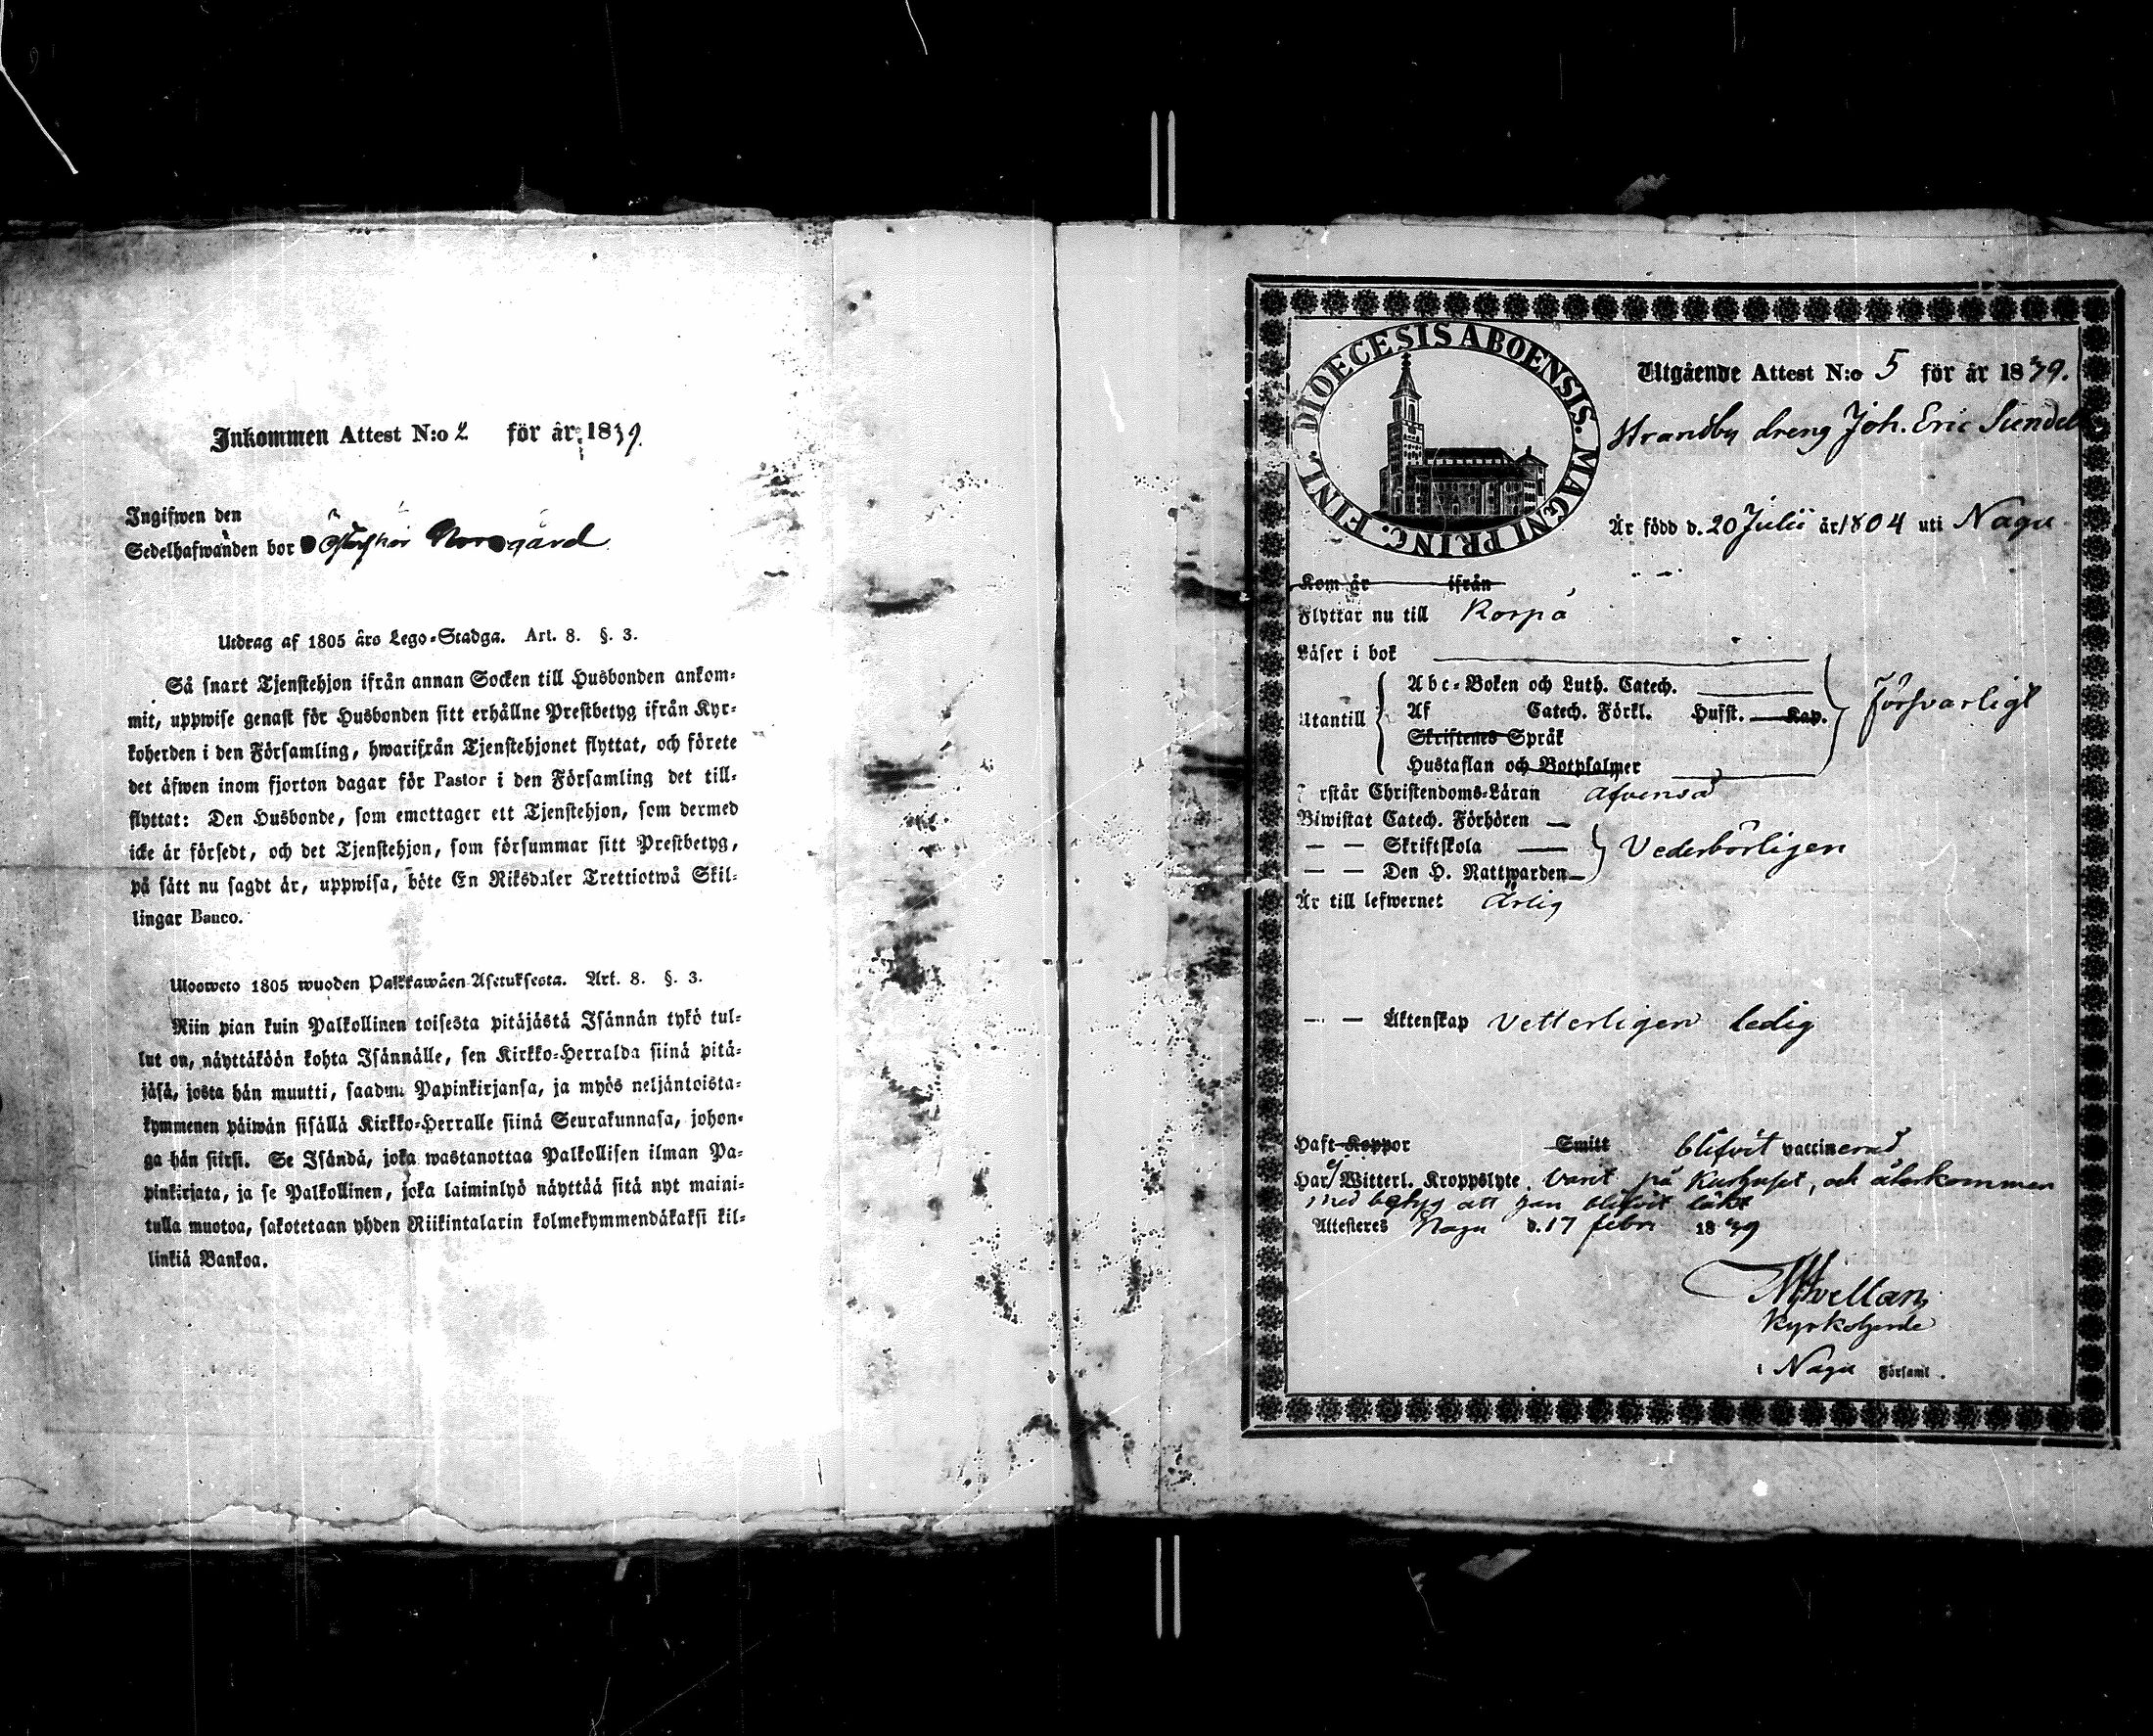 Inkommen Attest N:o 2 för år 1839.
Ingifwen den
Sedelhafwanden bor Norrgård
Utdrag af 1805 års Lego-Stadga. Art. 8. §. 3.
Så snart Tjenstehjon ifrån annan Socken till Husbonden ankom-
mit, uppwise genast för Husbonden sitt erhållne Prestbetyg ifrån Kyr-
koherden i den Församling, hwarifrån Tjenstehjonet flyttat, och förete
det äfwen inom fjorton dagar för Pastor i den Församling det till-
flyttat: Den Husbonde, som emottager ett Tjenstehjon, som dermed
icke är försedt, och det Tjenstehjon, som försummar sitt Prestbetyg,
på sätt nu sagdt är, uppwisa, böte En Riksdaler Trettiotwå Skil-
lingar Banco.
Uloswelo 1805 wuoden Palkkawäen Asetuksesta. Art. 8. §. 3.
Niin pian kuin Palkollinen toisesta pitäjästä Isännän tykö tul-
lut on, näyttäköön kohta Isännälle, sen Kirkko-Herralda siinä pitä-
jäsä, josta hän muutti, saadun Papinkirjansa, ja myös neljäntoista-
kymmenen päiwän sisällä Kirkko-Herralle siinä Seurakunnasa, johon-
ga hän siirsi. Se Isändä, joka wastanottaa Palkollisen ilman Pa-
pinkirjata, ja se Palkollinen, joka laiminlyö näyttää sitä nyt maini-
tulla muotoa, sakotetaan yhden Riikintalarin kolmekymmendäkaksi kil-
linkiä Bankoa.
DIOECESIS ABOENSIS. MAGNI PRINC. FINL.
Utgående Attest N:o 5 för år 1839.
Strandby dreng Joh. Eric Sundell
Är född d. 20 Julii år 1804 uti Nagu
Kom år ifrån
Flyttar nu till Korpo
Läser i bok
Abc-Boken och Luth. Catech.
Utantill Af Catech. Förkl. Husst. Kap. Försvarligt
Skriftenes Språk
Hustaflan och Botpsalmer
rstår Christendoms-Läran äfvenså
Biwistat Catech. Förhören
— — Skriftskola Vederbörligen
— — Den H. Nattwarden
Är till lefwernet Ärlig
— — Äktenskap Vetterligen ledig
Haft Koppor Smitt blifvit vaccinerad
Har ej Witterl. Kroppslyte. Varit på Kurhuset, och återkommen
med betyg att han blifvit läkt
Attesteres Nagu d. 17 febr 1839
Kyrkoherde
i Nagu Församl.